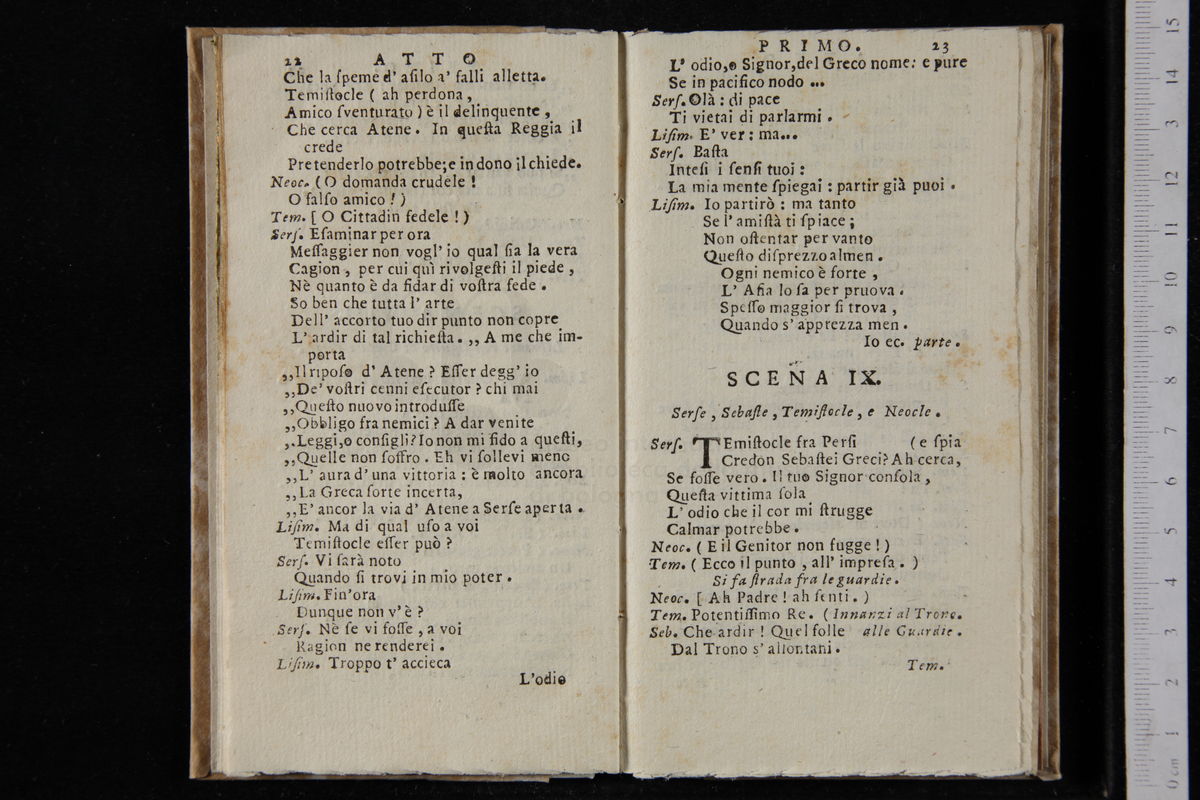 22 ATTO
Che la ſpeme d' aſilo a' falli alletta.
Temiſtocle ( ah perdona,
Amico ſventurato ) è il delinquente,
Che cerca Atene. In queſta Reggia il
crede
Pretenderlo potrebbe; e in dono il chiede.
Neoc. ( O domanda crudele !
O falſo amico ! )
Tem. [ O Cittadin fedele ! )
Serſ. Eſaminar per ora
Meſſaggier non vogl' io qual ſia la vera
Cagion, per cui quì rivolgeſti il piede,
Nè quanto è da fidar di voſtra fede.
So ben che tutta l' arte
Dell' accorto tuo dir punto non copre
L' ardir di tal richieſta. ,, A me che im-
porta
,,Il ripoſo d' Atene ? Eſſer degg' io
,,De' voſtri cenni eſecutor ? chi mai
,,Queſto nuovo introduſſe
,,Obbligo fra nemici ? A dar venite
,,Leggi, o conſigli? Io non mi fido a queſti,
,,Quelle non ſoffro. Eh vi ſollevi meno
,,L' aura d' una vittoria : è molto ancora
,,La Greca ſorte incerta,
,,E' ancor la via d' Atene a Serſe aperta.
Liſim. Ma di qual uſo a voi
Temiſtocle eſſer può ?
Serſ. Vi ſarà noto
Quando ſi trovi in mio poter.
Liſim. Fin'ora
Dunque non v' è ?
Serſ. Nè ſe vi foſſe, a voi
Ragion ne renderei.
Liſim. Troppo t' accieca
L'odio
PRIMO. 23
L' odio, o Signor, del Greco nome: e pure
Se in pacifico nodo ...
Serſ. Olà : di pace
Ti vietai di parlarmi.
Liſim. E' ver : ma...
Serſ. Baſta
Inteſi i ſenſi tuoi :
La mia mente ſpiegai : partir già puoi.
Liſim. Io partirò : ma tanto
Se l' amiſtà ti ſpiace ;
Non oſtentar per vanto
Queſto diſprezzo almen.
Ogni nemico è forte,
L' Aſia lo ſa per pruova.
Speſſo maggior ſi trova,
Quando s' apprezza men.
Io ec. parte.
SCENA IX.
Serſe, Sebaſte, Temiſtocle, e Neocle.
Serſ. TEmiſtocle fra Perſi ( e ſpia
Credon Sebaſte i Greci? Ah cerca,
Se foſſe vero. Il tuo Signor conſola,
Queſta vittima ſola
L' odio che il cor mi ſtrugge
Calmar potrebbe.
Neoc. ( E il Genitor non fugge ! )
Tem. ( Ecco il punto, all' impreſa. )
Si fa ſtrada fra le guardie.
Neoc. [ Ah Padre ! ah ſenti. )
Tem. Potentiſſimo Re. ( Innanzi al Trono.
Seb. Che ardir ! Quel folle alle Guardie.
Dal Trono s' allontani.
Tem.